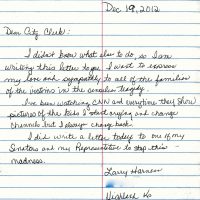 Dec 19, 2012
Dear City Clerk:
I didn't know what else to do, so I am
writing this letter to you. I want to express
my love and sympathy to all of the families
of the victims in the senseless tragedy.
I've been watching CNN and everytime they show
pictures of the kids I start crying, and change
channels but I always change back.
I did write a letter today to one of my
Senators and my Representative to stop this
madness.
Larry
Ks